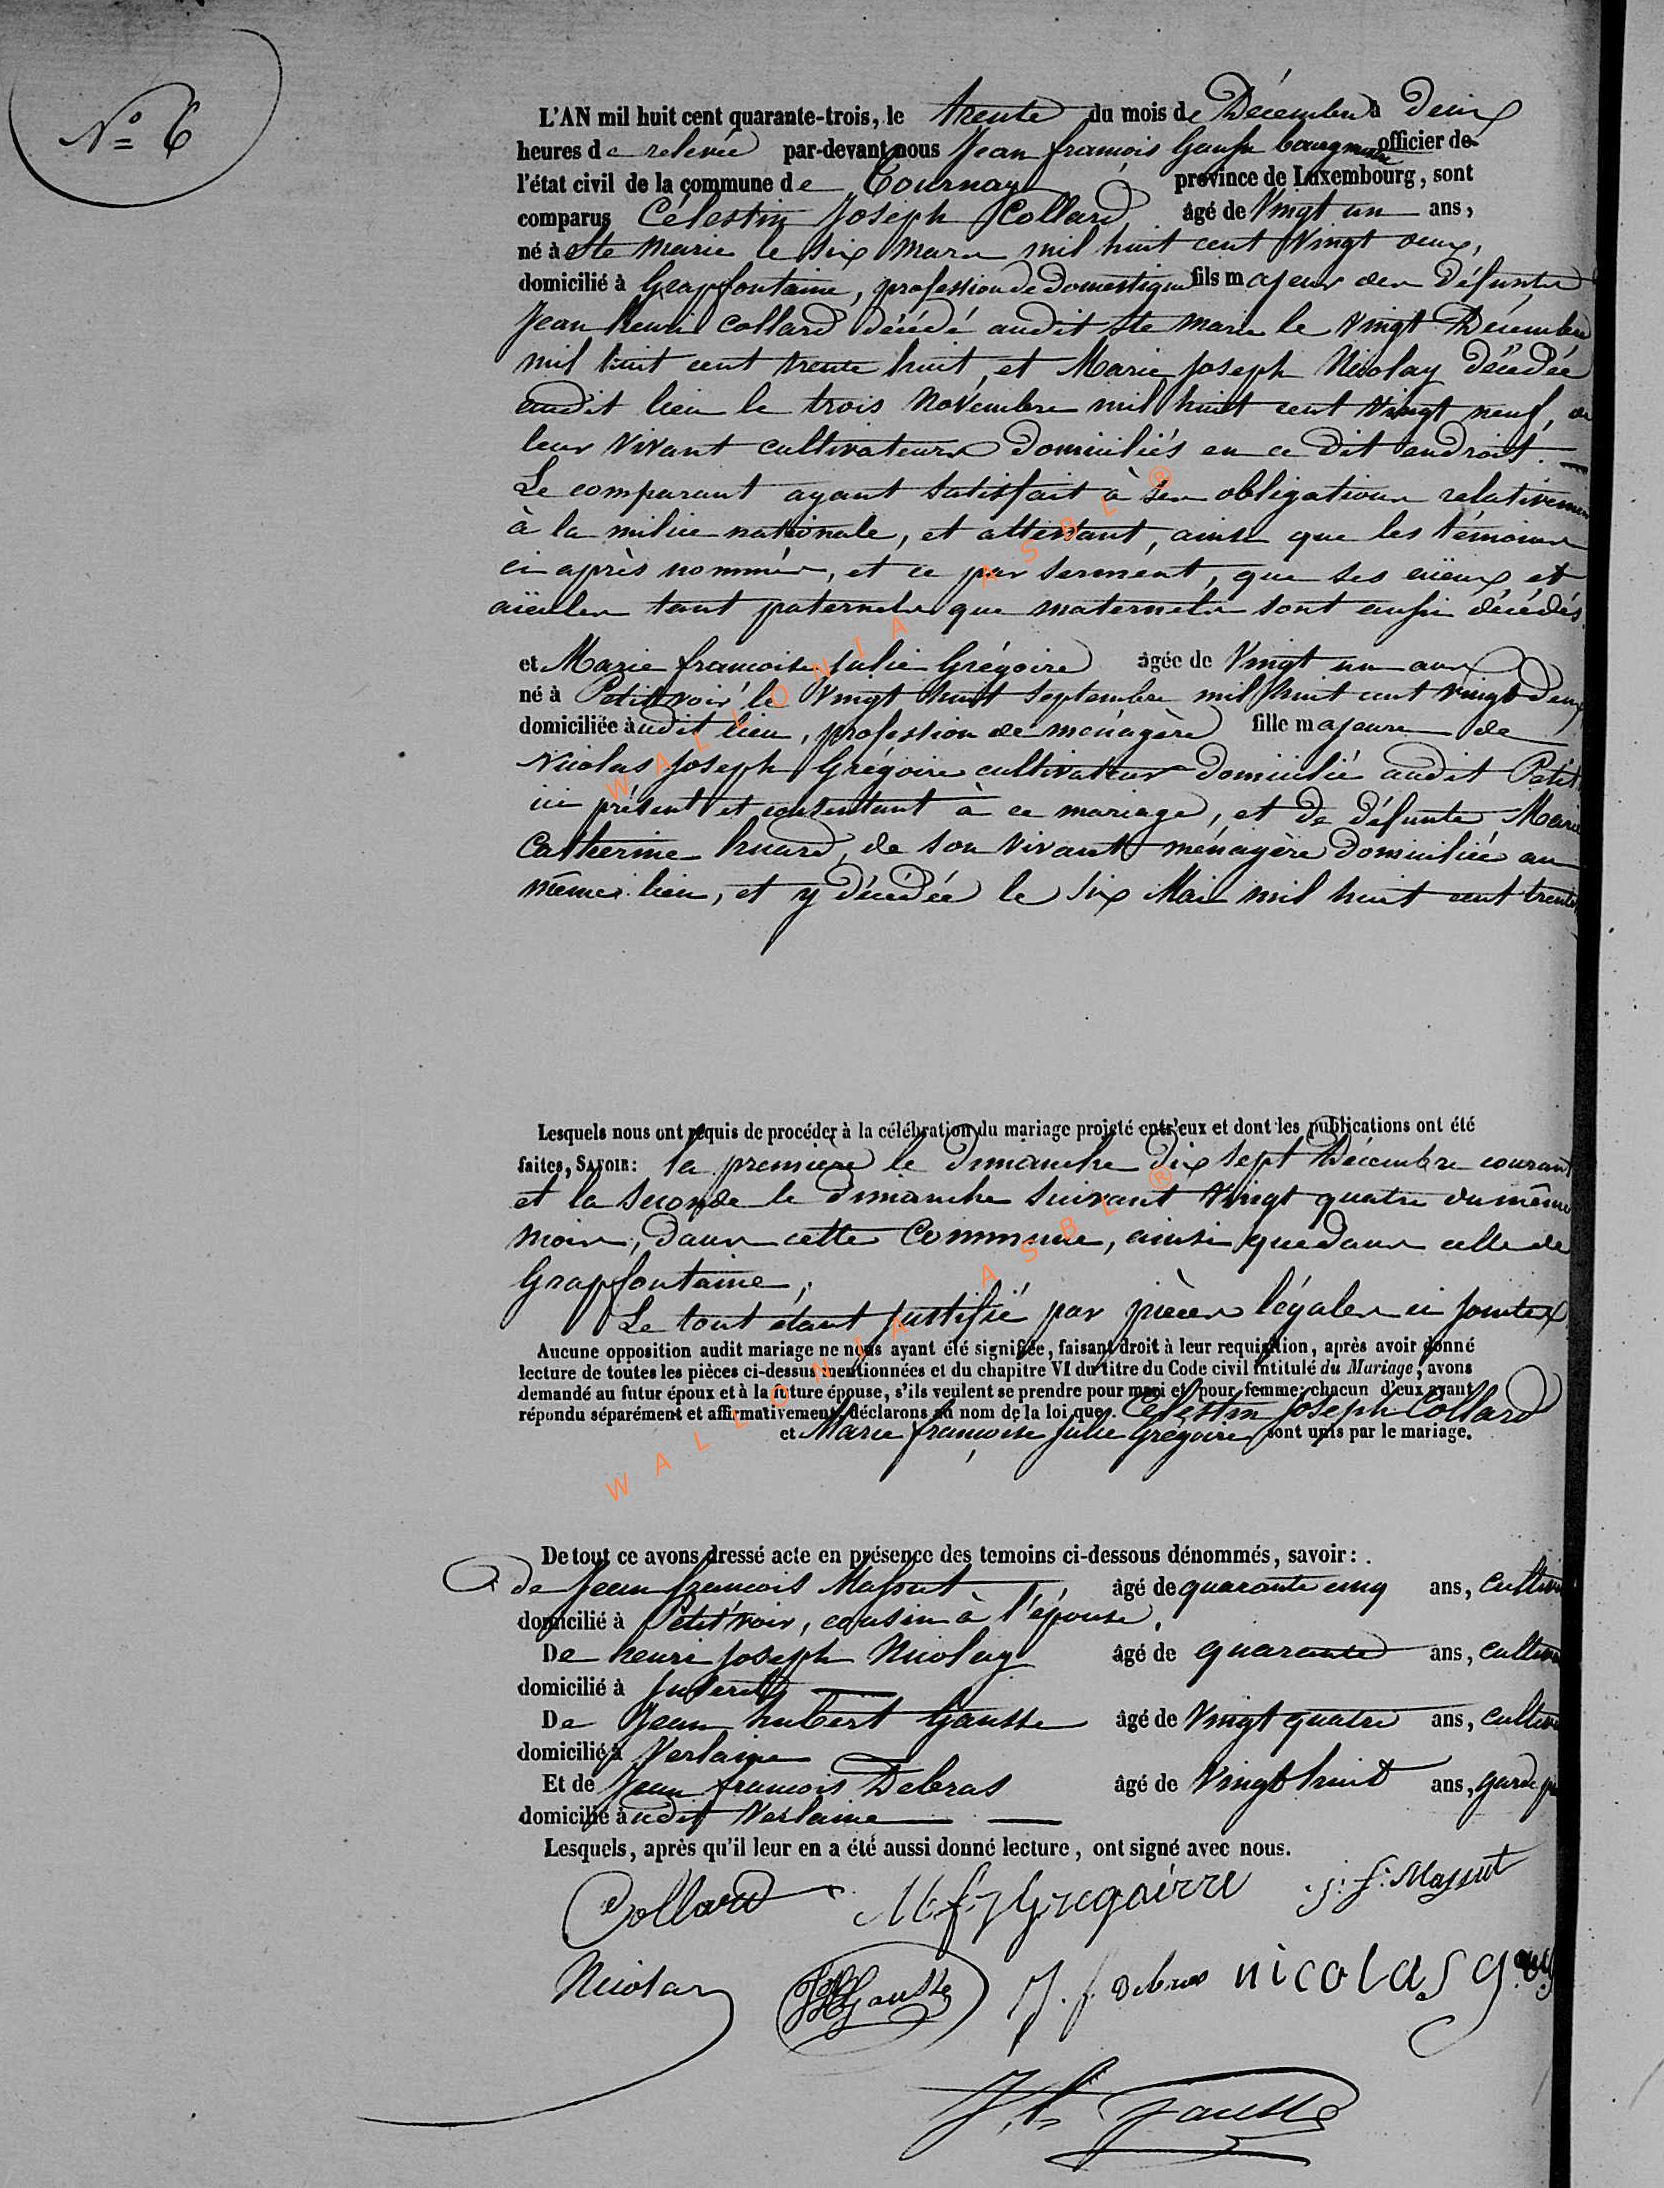 Nº 6
L'AN mil huit cent quarante-trois, le trente du mois de Décembre à deux
heures de relevée par-devant nous Jean françois Gausse bourgmestre officier de
l'état civil de la commune de Tournay province de Luxembourg, sont
comparus Célestin Joseph Collard âgé de Vingt un ans,
né à Ste Marie le six Mars mil huit cent Vingt deux,
domicilié à Grapfontaine, profession de Domestique fils majeur des Défunts
Jean henri Collard décédé audit Ste Marie le Vingt Décembre
mil huit cent trente huit, et Marie Joseph Nicolay Décédée
audit lieu le trois Novembre mil huit cent Vingt neuf, de
leur Vivant cultivateurs Domiciliés en ce dit endroit.
Le comparant ayant satisfait à ses obligations relativement
à la milice nationale, et attestant, ainsi que les témoins
ci après nommés, et ce par serment, que ses aïeux et
aïeules tant paternels que maternels sont aussi décédés.
et Marie françoise Julie Grégoire âgée de Vingt un ans
né à Petitvoir le Vingt huit Septembre mil huit cent vingt deux
domiciliée audit lieu, profession de ménagère fille majeure de
Nicolas Joseph Grégoire cultivateur Domicilié audit Petit
ici présent et consentant à ce mariage, et de défunte Marie
Catherine huard, de son vivant ménagère Domiciliée au
même lieu, et y décédée le six Mai mil huit cent trente
Lesquels nous ont requis de procéder à la célébration du mariage projeté entr'eux et dont les publications ont été
faites, SAVOIR: la première le Dimanche dix sept Décembre courant
et la seconde le Dimanche suivant Vingt quatre du même
mois, dans cette Commune, ainsi que dans celle de
Grapfontaine,
Le tout étant justifié par pièces légales ci jointes
Aucune opposition audit mariage ne nous ayant été signifiée, faisant droit à leur requisition, après avoir donné
lecture de toutes les pièces ci-dessus mentionnées et du chapitre VI du titre du Code civil intitulé du Mariage, avons
demandé au futur époux et à la future épouse, s'ils veulent se prendre pour mari et pour femme; chacun d'eux ayant
répondu séparément et affirmativement, déclarons au nom de la loi que Célestin Joseph Collard
et Marie françoise Julie Grégoire sont unis par le mariage.
De tout ce avons dressé acte en présence des temoins ci-dessous dénommés, savoir:
de Jean françois Massut âgé de quarante cinq ans,
domicilié à Petitvoir, cousin à l'épouse,
De henri Joseph Nicolay âgé de quarante ans,
domicilié à
De Jean hubert Gausse âgé de Vingt quatre ans,
domicilié à Verlaine
Et de Jean françois Debras âgé de Vingt huit ans, garde
domicilié audit Verlaine
Lesquels, après qu'il leur en a été aussi donné lecture, ont signé avec nous.
Collard M f J Gregoirre J: f: Massut
Nicolay JH Gausse J. f. Debras nicolas
J. f. Gausse
WALLONIA ASBL ®
WALLONIA ASBL ®